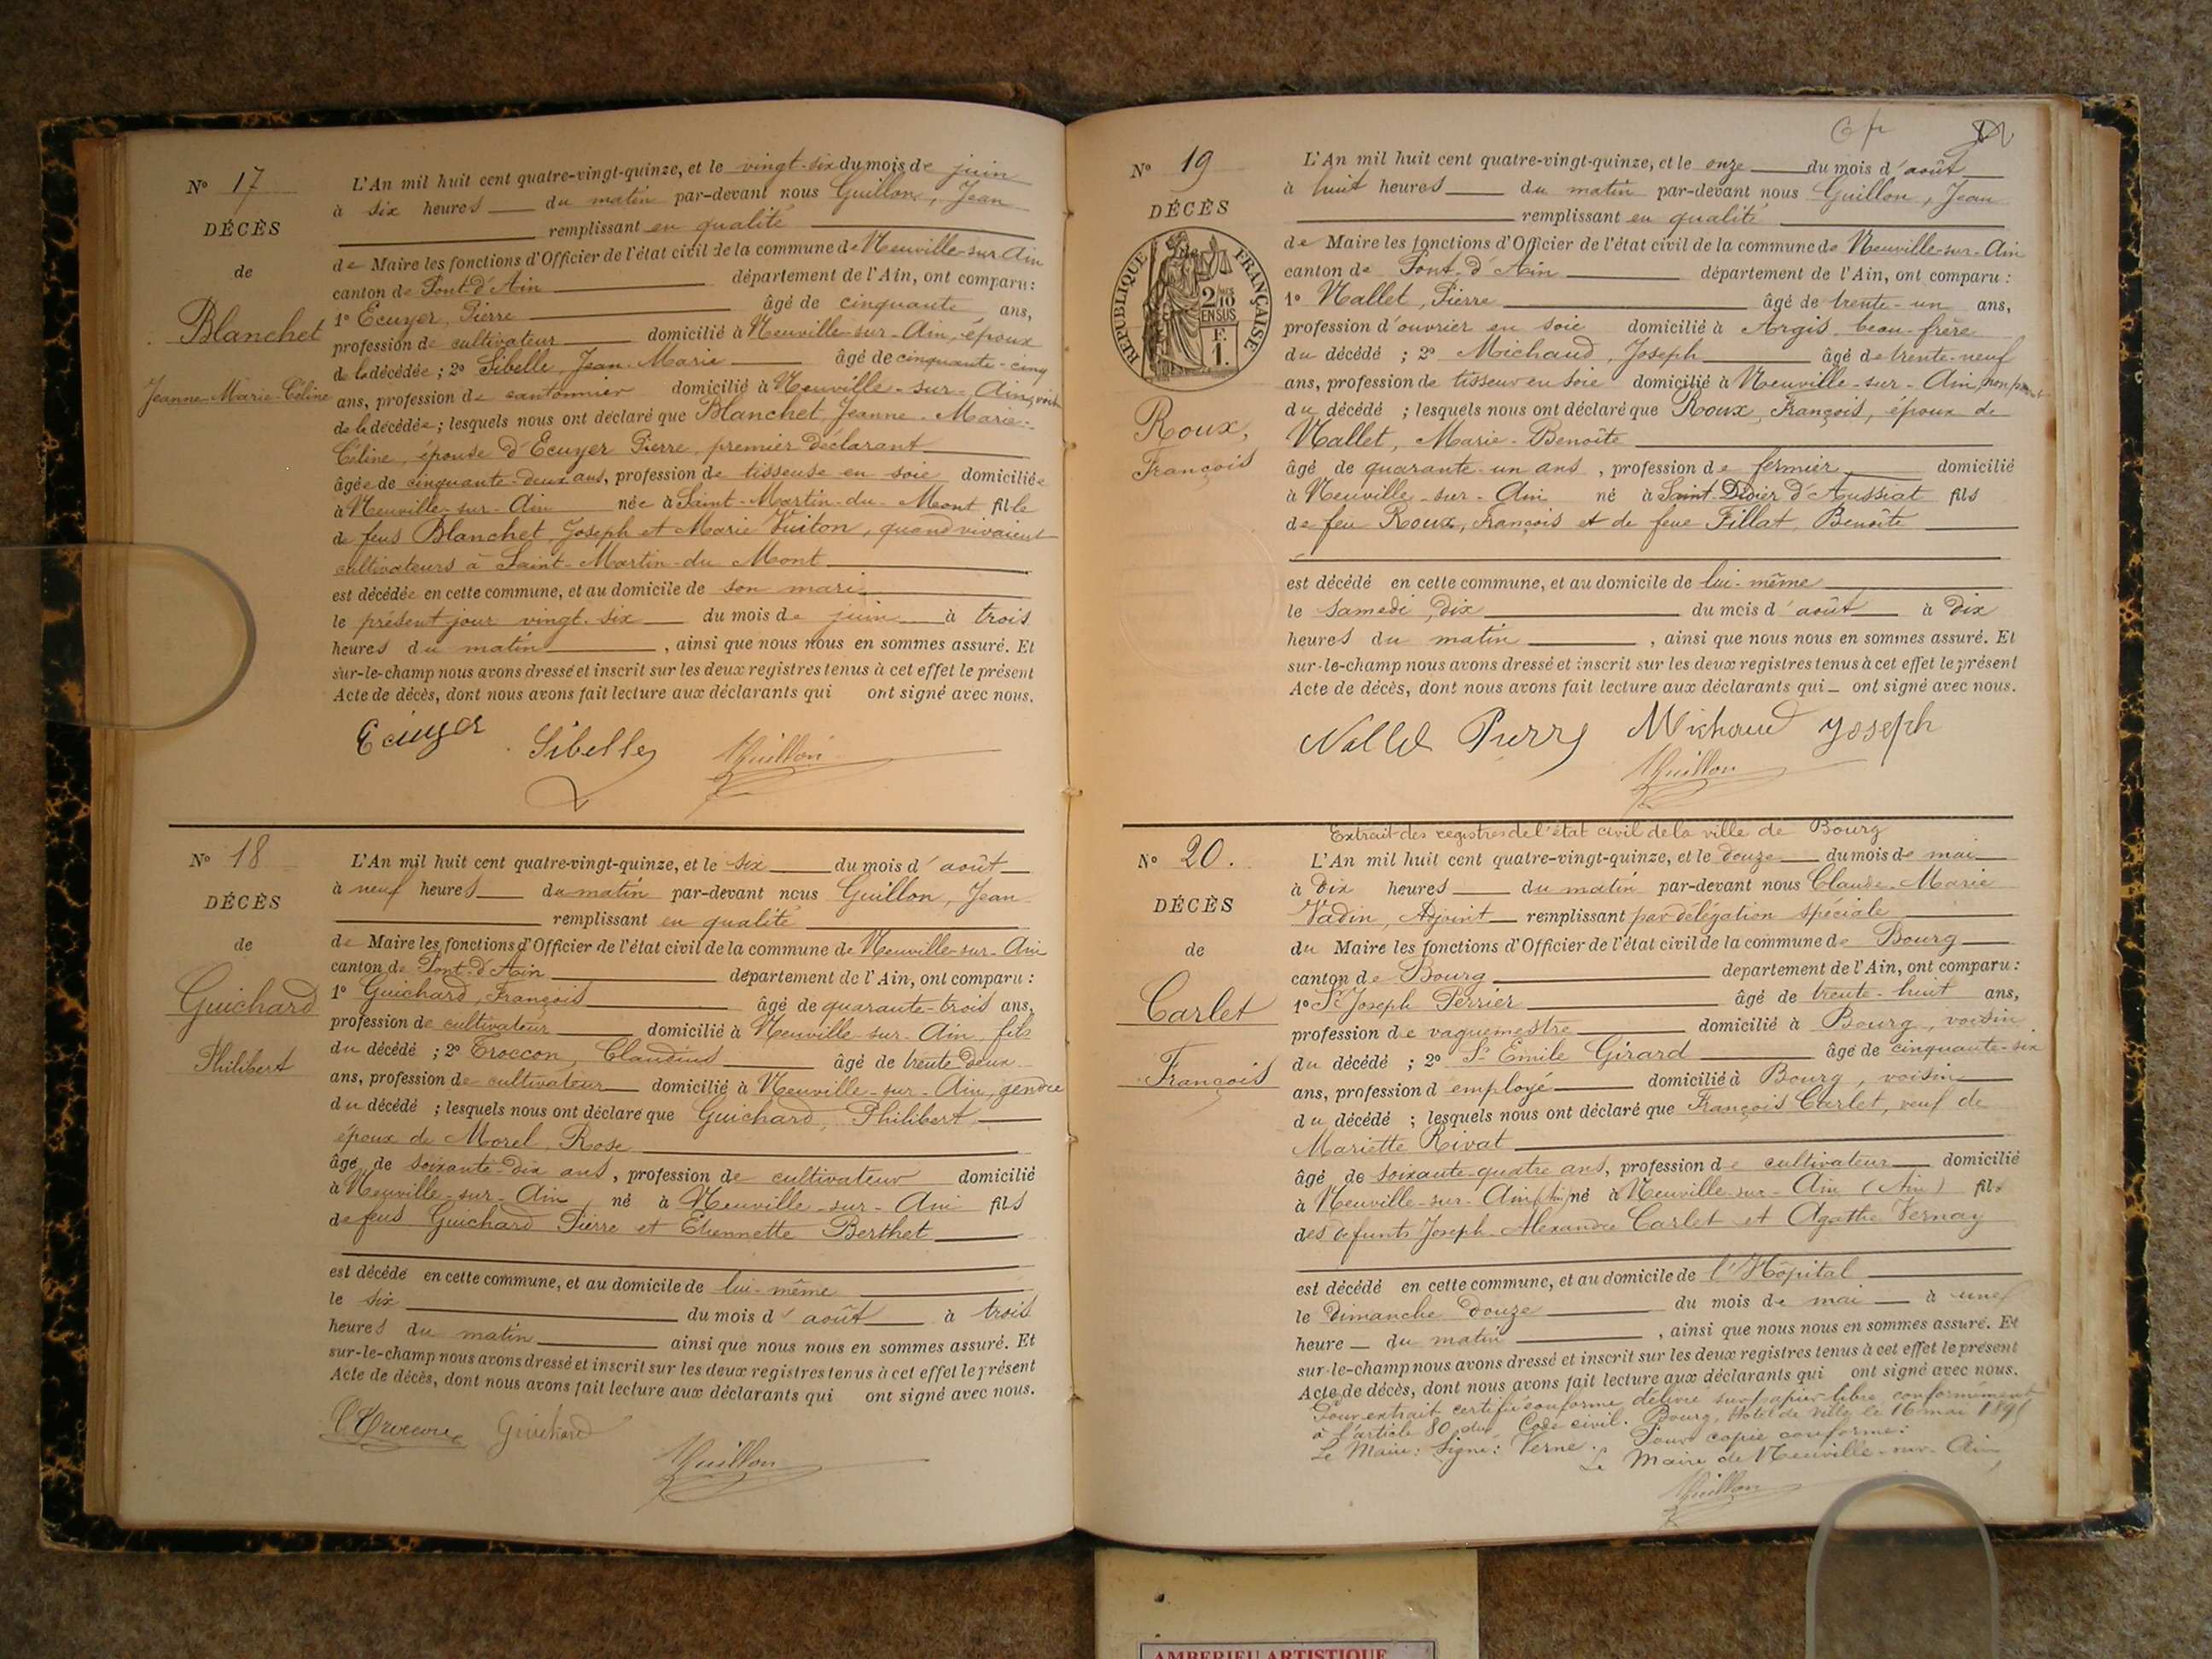 N° 17
DÉCÈS
de
Blanchet
Jeanne-Marie-Céline
L'An mil huit cent quatre-vingt-quinze, et le vingt-six du mois de juin
à six heures du matin par-devant nous Guillon, Jean
remplissant en qualité
de Maire les fonctions d'Officier de l'état civil de la commune de Neuville-sur-Ain
canton de Pont-d'Ain département de l'Ain, ont comparu:
1° Ecuyer, Pierre âgé de cinquante ans,
profession de cultivateur domicilié à Neuville-sur-Ain, époux
de la décédée; 2° Sibelle, Jean-Marie âgé de cinquante-cinq
ans, profession de cantonnier domicilié à Neuville-sur-Ain,
de la décédée; lesquels nous ont déclaré que Blanchet, Jeanne-Marie-
Céline, épouse d'Ecuyer Pierre, premier déclarant
âgée de cinquante-deux ans, profession de tisseuse en soie domiciliée
à Neuville-sur-Ain née à Saint-Martin-du-Mont fille
de feus Blanchet, Joseph et Marie Vuiton, quand vivaient
cultivateurs à Saint-Martin-du Mont
est décédée en cette commune, et au domicile de son mari
le présent jour vingt-six du mois de juin à trois
heures du matin, ainsi que nous nous en sommes assuré. Et
sur-le-champ nous avons dressé et inscrit sur les deux registres tenus à cet effet le présent
Acte de décès, dont nous avons fait lecture aux déclarants qui ont signé avec nous.
Ecuyer Sibelle Guillon
N° 18
DÉCÈS
de
Guichard
Philibert
L'An mil huit cent quatre-vingt-quinze, et le six du mois d'août
à neuf heures du matin par-devant nous Guillon, Jean
remplissant en qualité
de Maire les fonctions d'Officier de l'état civil de la commune de Neuville-sur-Ain
canton de Pont-d'Ain département de l'Ain, ont comparu:
1° Guichard, François âgé de quarante-trois ans,
profession de cultivateur domicilié à Neuville-sur-Ain, fils
du décédé; 2° Troccon, Claudius âgé de trente-deux
ans, profession de cultivateur domicilié à Neuville-sur-Ain, gendre
du décédé; lesquels nous ont déclaré que Guichard, Philibert
époux de Morel, Rose
âgé de soixante-dix ans, profession de cultivateur domicilié
à Neuville-sur-Ain né à Neuville-sur-Ain fils
de feus Guichard Pierre et Etiennette Berthet
est décédé en cette commune, et au domicile de lui-même
le six du mois d'août à trois
heures du matin ainsi que nous nous en sommes assuré. Et
sur-le-champ nous avons dressé et inscrit sur les deux registres tenus à cet effet le présent
Acte de décès, dont nous avons fait lecture aux déclarants qui ont signé avec nous.
Guichard
Guillon
N° 19
DÉCÈS
RÉPUBLIQUE FRANÇAISE
2/10
EN SUS
F.
1.
Roux,
François
L'An mil huit cent quatre-vingt-quinze, et le onze du mois d'août
à huit heures du matin par-devant nous Guillon, Jean
remplissant en qualité
de Maire les fonctions d'Officier de l'état civil de la commune de Neuville-sur-Ain
canton de Pont-d'Ain département de l'Ain, ont comparu:
1° Nallet, Pierre âgé de trente-un ans,
profession d'ouvrier en soie domicilié à Argis, beau-frère
du décédé; 2° Michaud, Joseph âgé de trente-neuf
ans, profession de tisseur en soie domicilié à Neuville-sur-Ain, non
du décédé; lesquels nous ont déclaré que Roux, François, époux de
Nallet, Marie-Benoîte
âgé de quarante-un ans, profession de fermier domicilié
à Neuville-sur-Ain né à Saint-Didier d'Aussiat fils
de feu Roux, François et de feue Fillat, Benoîte
est décédé en cette commune, et au domicile de lui-même
le samedi, dix du mois d'août à dix
heures du matin, ainsi que nous nous en sommes assuré. Et
sur-le-champ nous avons dressé et inscrit sur les deux registres tenus à cet effet le présent
Acte de décès, dont nous avons fait lecture aux déclarants qui ont signé avec nous.
Nallet Pierre Michaud Joseph
Guillon
Extrait des registres de l'état civil de la ville de Bourg
N° 20.
DÉCÈS
de
Carlet
François
L'An mil huit cent quatre-vingt-quinze, et le douze du mois de mai
à dix heures du matin par-devant nous Claude-Marie
Vadin, Adjoint remplissant par délégation spéciale
du Maire les fonctions d'Officier de l'état civil de la commune de Bourg
canton de Bourg département de l'Ain, ont comparu:
1° Sr Joseph Perrier âgé de trente-huit ans,
profession de vaguemestre domicilié à Bourg, voisin
du décédé; 2° Sr Emile Girard âgé de cinquante-six
ans, profession d'employé domicilié à Bourg, voisin
du décédé; lesquels nous ont déclaré que François Carlet, veuf de
Mariette Rivat
âgé de soixante-quatre ans, profession de cultivateur domicilié
à Neuville-sur-Ain (Ain) né à Neuville-sur-Ain (Ain) fils
des défunts Joseph-Alexandre Carlet et Agathe Vernay
est décédé en cette commune, et au domicile de l'Hôpital
le Dimanche douze du mois de mai à une
heure du matin, ainsi que nous nous en sommes assuré. Et
sur-le-champ nous avons dressé et inscrit sur les deux registres tenus à cet effet le présent
Acte de décès, dont nous avons fait lecture aux déclarants qui ont signé avec nous.
Pour extrait certifié conforme délivré sur papier libre conformément
à l'article 80 du Code civil. Bourg, Hôtel de Ville le 16 mai 1895
Le Maire: Signé: Verne. Pour copie conforme:
Le Maire de Neuville-sur-Ain,
Guillon
AMBERIEU ARTISTIQUE